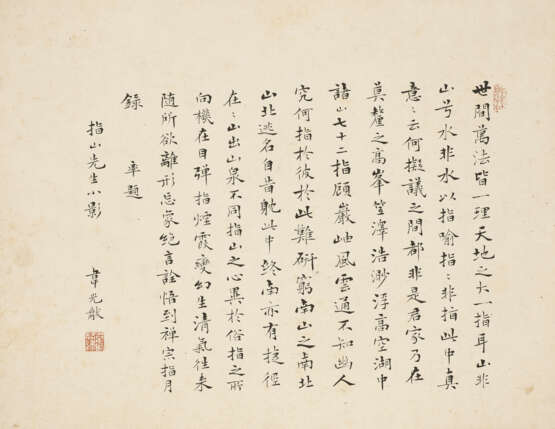 世間萬法皆一理天地之大一指耳山非
山兮水非水以指喻指:非指此中真
意:云何擬議之間都非是君家乃在
莫釐之高峯笠澤浩渺浮高空湖中
諸山七十二指顧巖岫風雲通不知幽人
究何指於彼於此難研窮南山之南北
山北逃名自昔躭此中終南亦有捷徑
在:山出山泉不同指山之心異於俗指之所
向樸在目彈指煙霞變幻生清氣往來
隨所欲離形忘象絕言詮悟到禪宗指月
錄　率題
指山先生小影
韋光黻